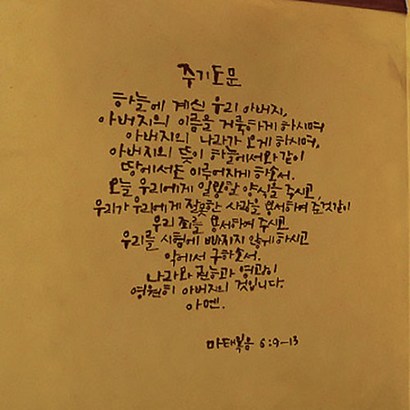 주기도문
하늘에 계신 우리 아버지,
아버지의 이름을 거룩하게 하시며
아버지의 나라가 오게 하시며,
아버지의 뜻이 하늘에서와 같이
땅에서도 이루어지게 하소서.
오늘 우리에게 일용할 양식을 주시고,
우리가 우리에게 잘못한 사람을 용서하여 준 것같이
우리 죄를 용서하여 주시고
우리를 시험에 빠지지 않게 하시고
악에서 구하소서.
나라와 권능과 영광이
영원히 아버지의 것입니다.
아멘.
마태복음 6:9-13